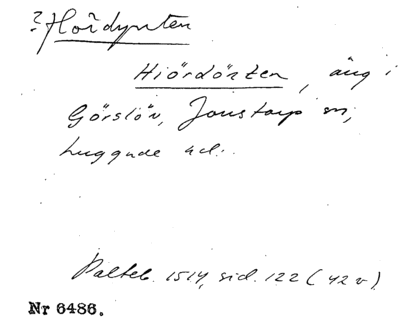 ? Hördynten
Hiördönten, äng i
Görslöv, Jonstorp sn,
Luggude hd.
Palteb. 1514, sid. 122 (42 v)
Nr 6486.